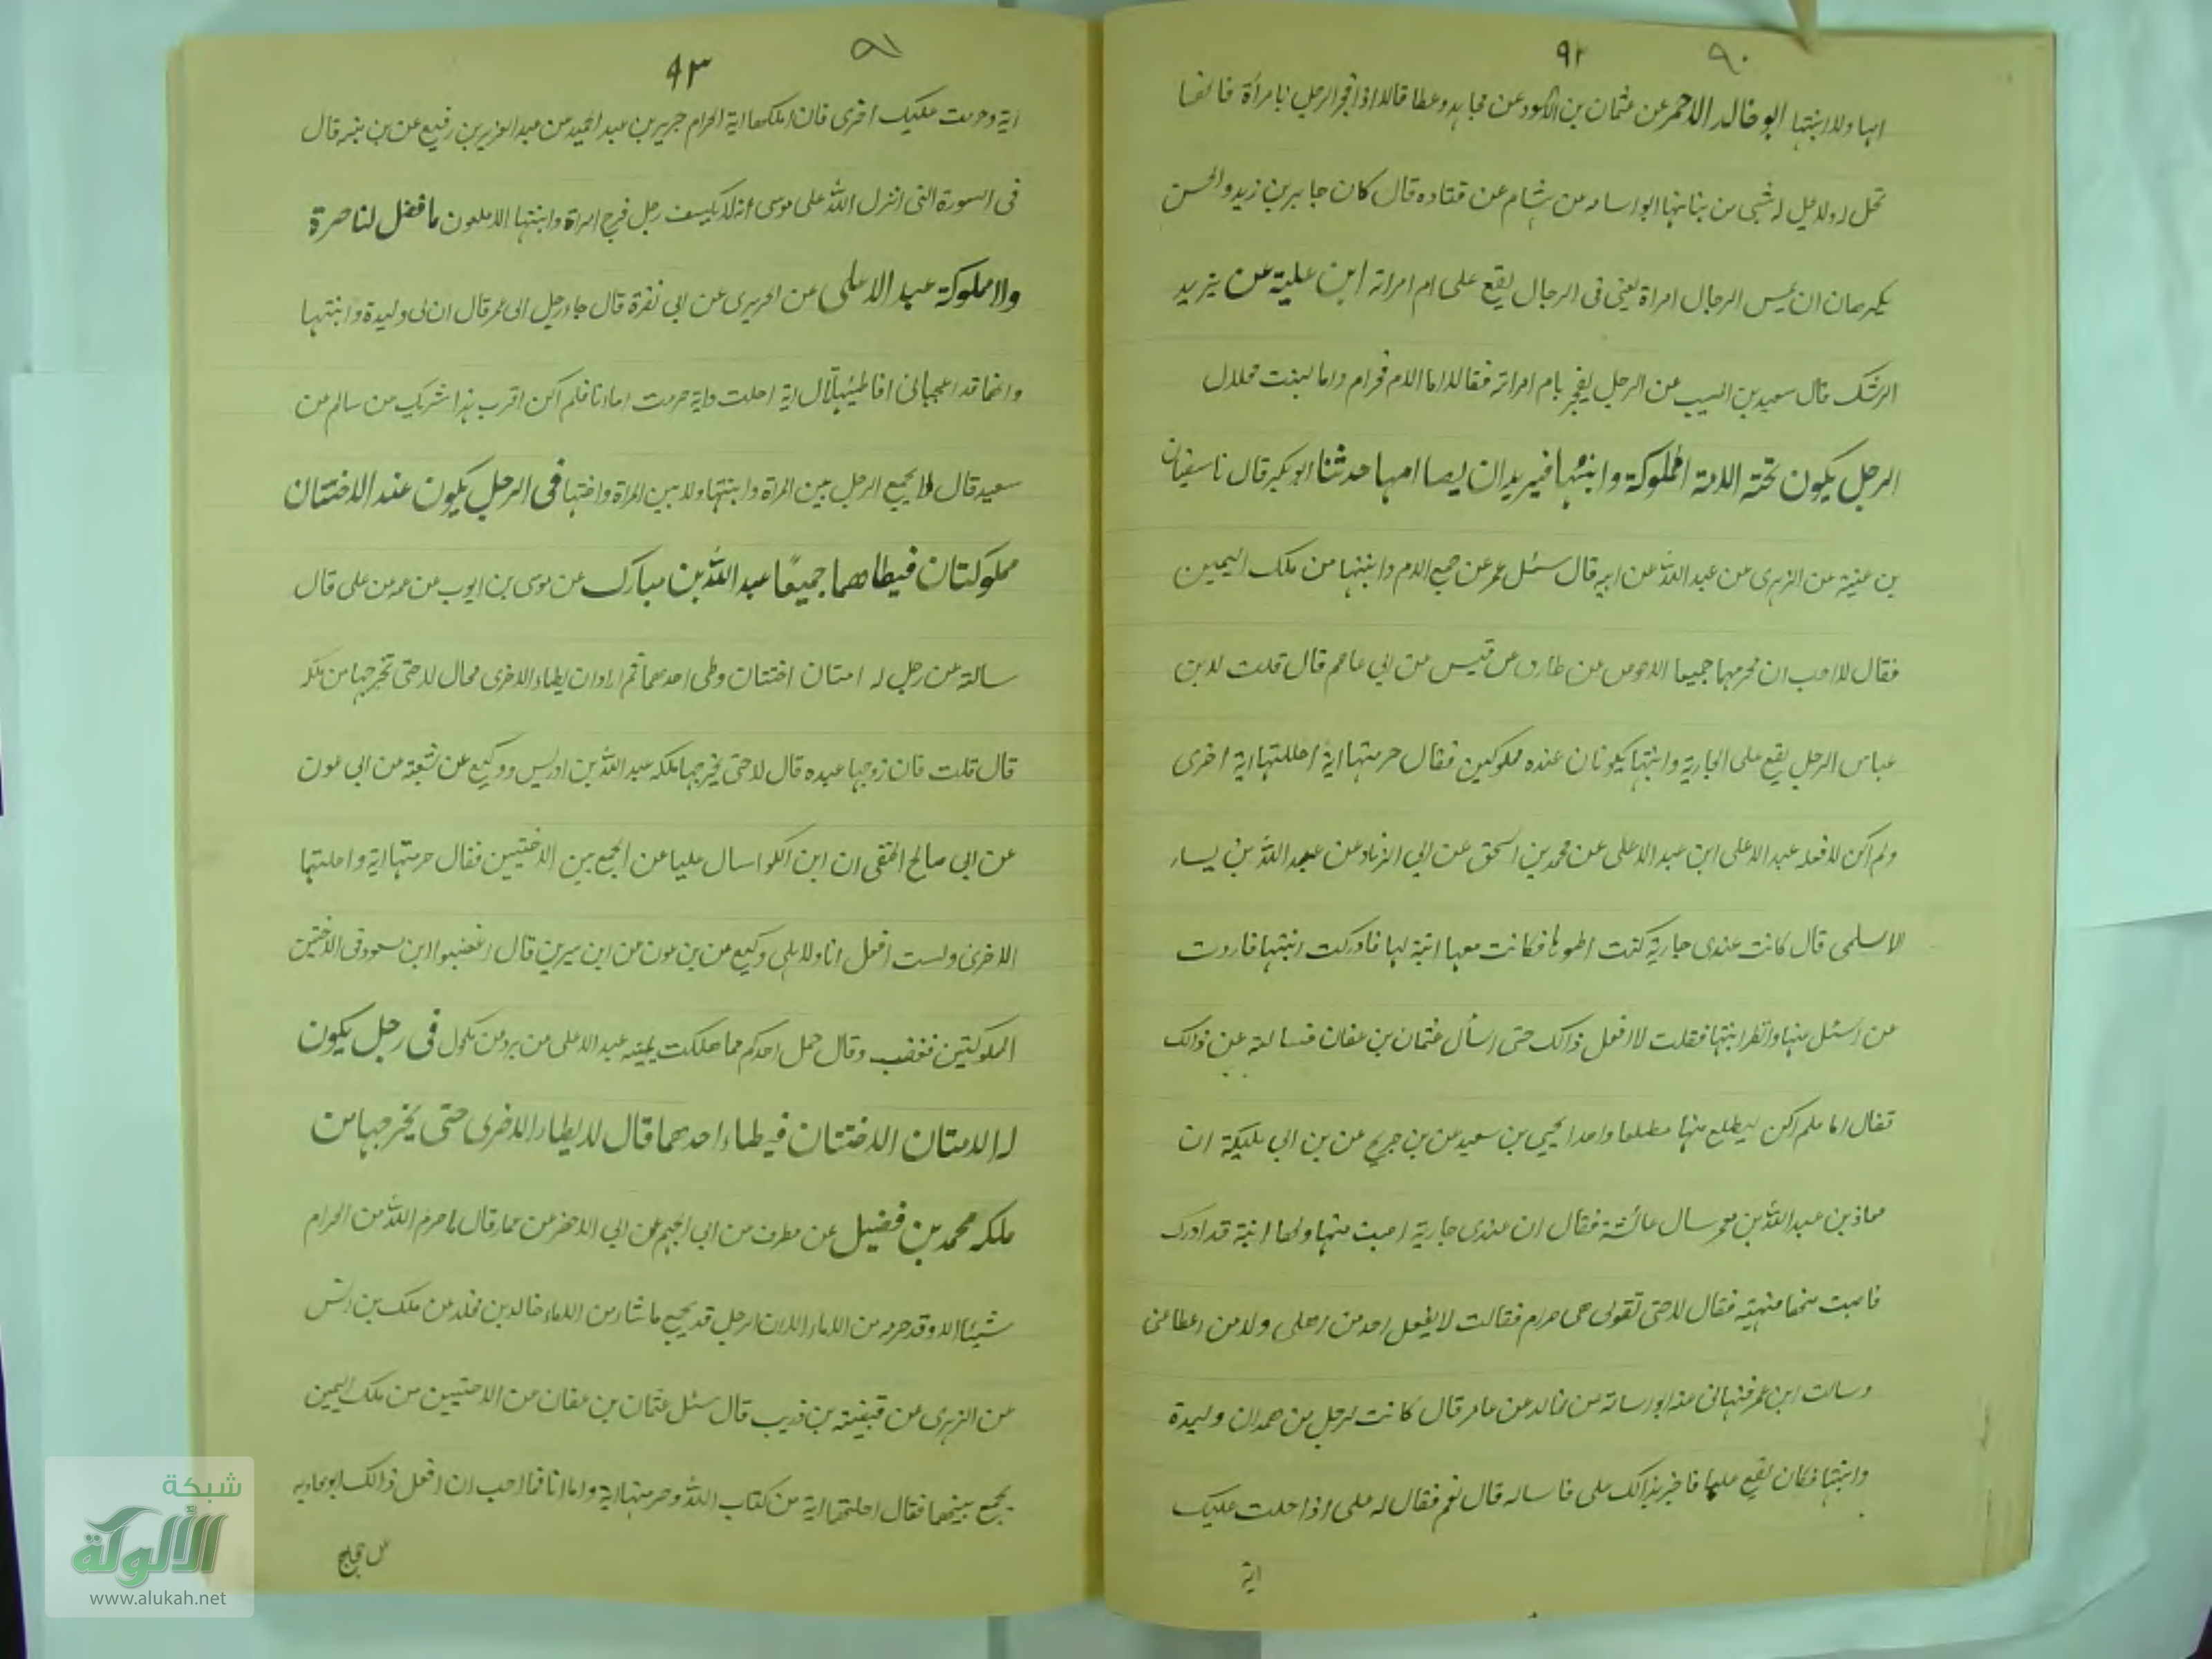 ٩٢ ٩٠
امها ولا ابنتها ابو خالد الاحمر عن عثمان بن الاسود عن مجاهد وعطا قالا اذا فجر الرجل بامرأة فانها
تحل له ولا يحل له شئ من بناتها ابو اسامه عن هشام عن قتاده قال كان جابر بن زيد والحسن
يكرهان ان يمس الرجال امراة يعني في الرجال يقع على ام امراته ابن علية عن يزيد
الرشك قال سعيد بن المسيب عن الرجل يفجر بام امراته فقال اما الام فحرام واما البنت فحلال
الرجل يكون تحته الامة المملوكة وابنتها فيريد ان يصا امها حدثنا ابو بكر قال نا سفيان
بن عينة عن الزهرى عن عبد الله عن ابيه قال سئل عمر عن جمع الام وابنتها من ملك اليمين
فقال لا احب ان يحرمها جميعا الاحوص عن طارق عن قيس عن ابي عاصم قال قلت لابن
عباس الرجل يقع على الجارية وابنتها يكونان عنده مملوكين فقال حرمتها اية احللتها اية اخرى
ولم اكن لافعله عبد الاعلى ابن عبد الاعلى عن محمد بن اسحق عن ابي الزناد عن عبد الله بن يسار
الاسلمى قال كانت عندى جارية كنت اطوها فكانت معها ابنة لها فادركت ابنتها فاردت
عن اسئل منها وانظر ابنتها فقلت لا افعل ذالك حتى اسأل عثمان بن عفان فسالته عن ذالك
فقال اما فلم اكن ليطلع منها مطلعا واحدا يحيى بن سعيد عن بن جريج عن بن ابي مليكة ان
معاذ بن عبد الله بن معمر سال عائشة فقال ان عندى جارية اصبت منها ولها ابنة قد ادرك
فاصبت منها فنهته فقال لا حتى تقولى هى حرام فقالت لا يفعل احد من اهلى ولا من اطاعنى
وسالت ابن عمر فنهانى عنه ابو اسامة عن مجالد عن عامر قال كانت لرجل من همدان وليدة
وابنتها فكان يقع عليها فاخبر بذالك على فساله قال نعم فقال له على اذا احلت عليك
اية
٩٣ ٩١
اية وحرمت عليك اخرى فان املكها اية الحرام جرير بن عبد الحميد عن عبد العزيز بن رفيع عن بن منبه قال
فى السورة التى انزل الله على موسى انه لا يكشف رجل فرج امراة وابنتها الا ملعون ما فضل لنا حرة
ولا مملوكة عبد الاعلى عن الجريرى عن ابى نضرة قال جاء رجل الى عمر قال ان لى وليدة وابنتها
وانهما قد اعجبانى افاطئهما قال اية احلت واية حرمت اما انا فلم اكن اقرب هذا شريك عن سالم عن
سعيد قال لا يجمع الرجل بين المراة وابنتها ولا بين المراة واختها فى الرجل يكون عند الاختان
مملوكتان فيطاهما جميعًا عبد الله بن مبارك عن موسى بن ايوب عن عمه عن على قال
سالته عن رجل له امتان اختان وطى احدهما ثم اراد ان يطاء الاخرى فحال لا حتى تخرجها من ملكه
قال قلت فان زوجها عبده قال لا حتى يخرجها ملكه عبد الله بن ادريس ووكيع عن شعبة عن ابى عون
عن ابى صالح الحنفى ان ابن الكوا سال عليا عن الجمع بين الاختيين فقال حرمتها اية واحلتها
الاخرى ولست افعل انا ولا اهلى وكيع عن بن عون عن ابن سيرين قال اغضبوا ابن مسعود فى الاختين
المملوكتين فغضب وقال جمل احدكم مما ملكت يمينه عبد الاعلى عن برد عن مكحول فى رجل يكون
له الامتان الاختان فيطاء احدهما قال لا يطاء الاخرى حتى يخرجها من
ملكه محمد بن فضيل عن مطرف عن ابى الجهم عن ابى الاخضر عن عمار قال ما حرم الله من الحرام
شيئا الا وقد حرمه من الاماء الا ان الرجل قد يجمع ما شاء من الاماء خالد بن مخلد عن ملك بن انس
عن الزهرى عن قبيصة بن ذويب قال سئل عثمان بن عفان عن الاختيين من ملك اليمين
يجمع بينهما فقال احلتهما اية من كتاب الله وحرمتها اية واما انا فما احب ان افعل ذالك ابو معاويه
شبكة
الألوكة
www.alukah.net